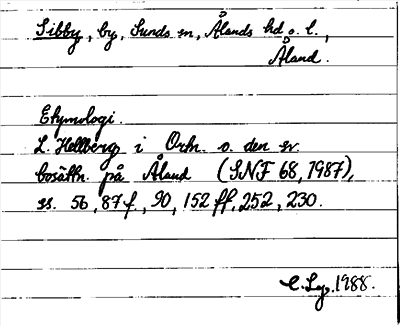 Sibby, by, Sunds sn, Ålands hd o. l.,
Åland.
Etymologi.
L. Hellberg i Ortn. o. den sv.
bosättn. på Åland (SNF 68, 1987),
ss. 56, 87 f., 90, 152 ff, 252, 230.
C. Lg. 1988.